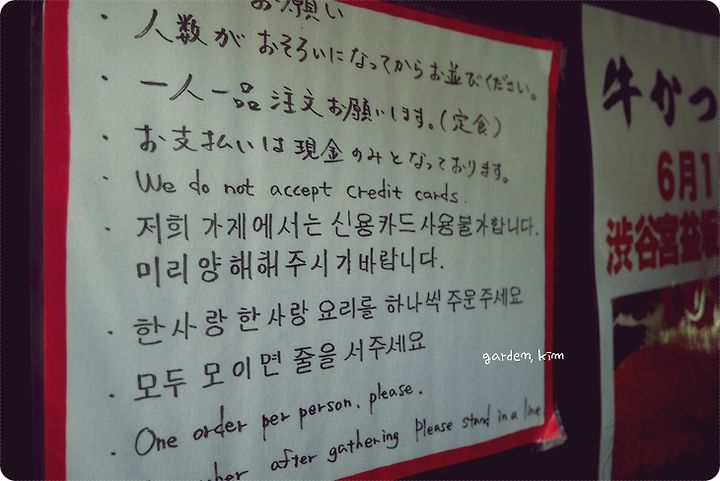 お願い
・人数がおそろいになってからお並びください。
・一人一品注文お願いします。(定食)
・お支払いは現金のみとなっております。
・We do not accept credit cards.
・저희 가게에서는 신용카드사용불가합니다.
미리양해해주시기바랍니다.
・한사랑 한사랑 요리를 하나씩 주문주세요
・모두 모이면 줄을 서주세요
・One order per person, please.
after gathering Please stand in a line
garden, kim
牛かつ
6月1
渋谷宮益